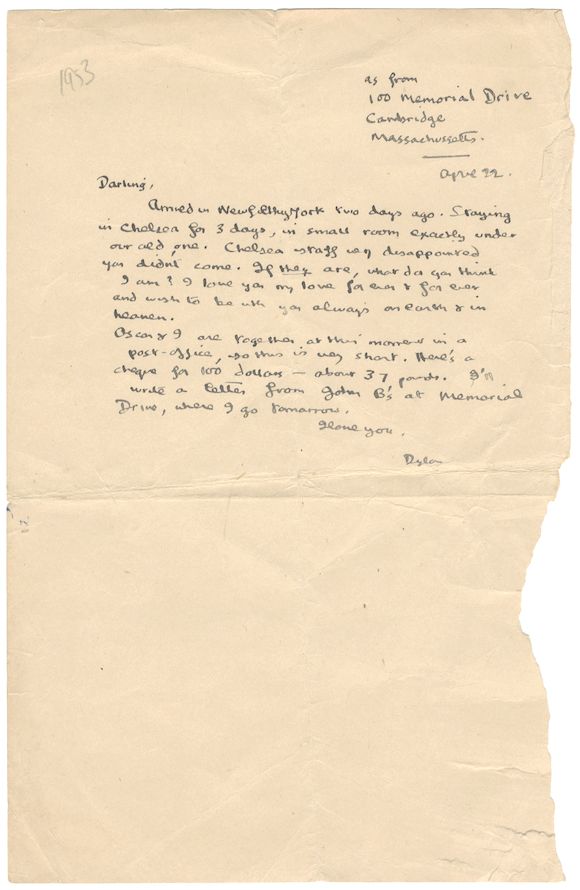 1953
as from
100 Memorial Drive
Cambridge
Massachussetts.
April 22.
Darling,
Arrived in New Filthy York two days ago. Staying
in Chelsea for 3 days, in small room exactly under
our old one. Chelsea staff very disappointed
you didn't come. If they are, what do you think
I am? I love you my love for ever & for ever
and wish to be with you always on earth & in
heaven.
Oscar & I are together at this moment in a
post-office, so this is very short. Here's a
cheque for 100 dollars — about 37 pounds. I'll
write a letter from John B's at Memorial
Drive, where I go tomorrow.
I love you,
Dylan